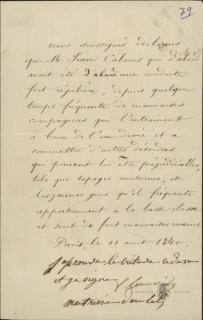 79
nous soussignés déclarons
que M. Jean Cabanis qui d'abord
avait été d'abord une conduite
fort régulière, depuis quelque
temps fréquente de mauvaises
compagnies qui l'entrainent
à boire de l'eau de vie et à
commettre d'autres désordres
qui peuvent lui être préjudiciables,
tels que tapages nocturnes, et
les jeunes gens qu'il fréquente
appartiennent à la basse classe
et sont de fort mauvaises mœurs.
Paris, le 11 août 1840.
J'approuve le
et je signe